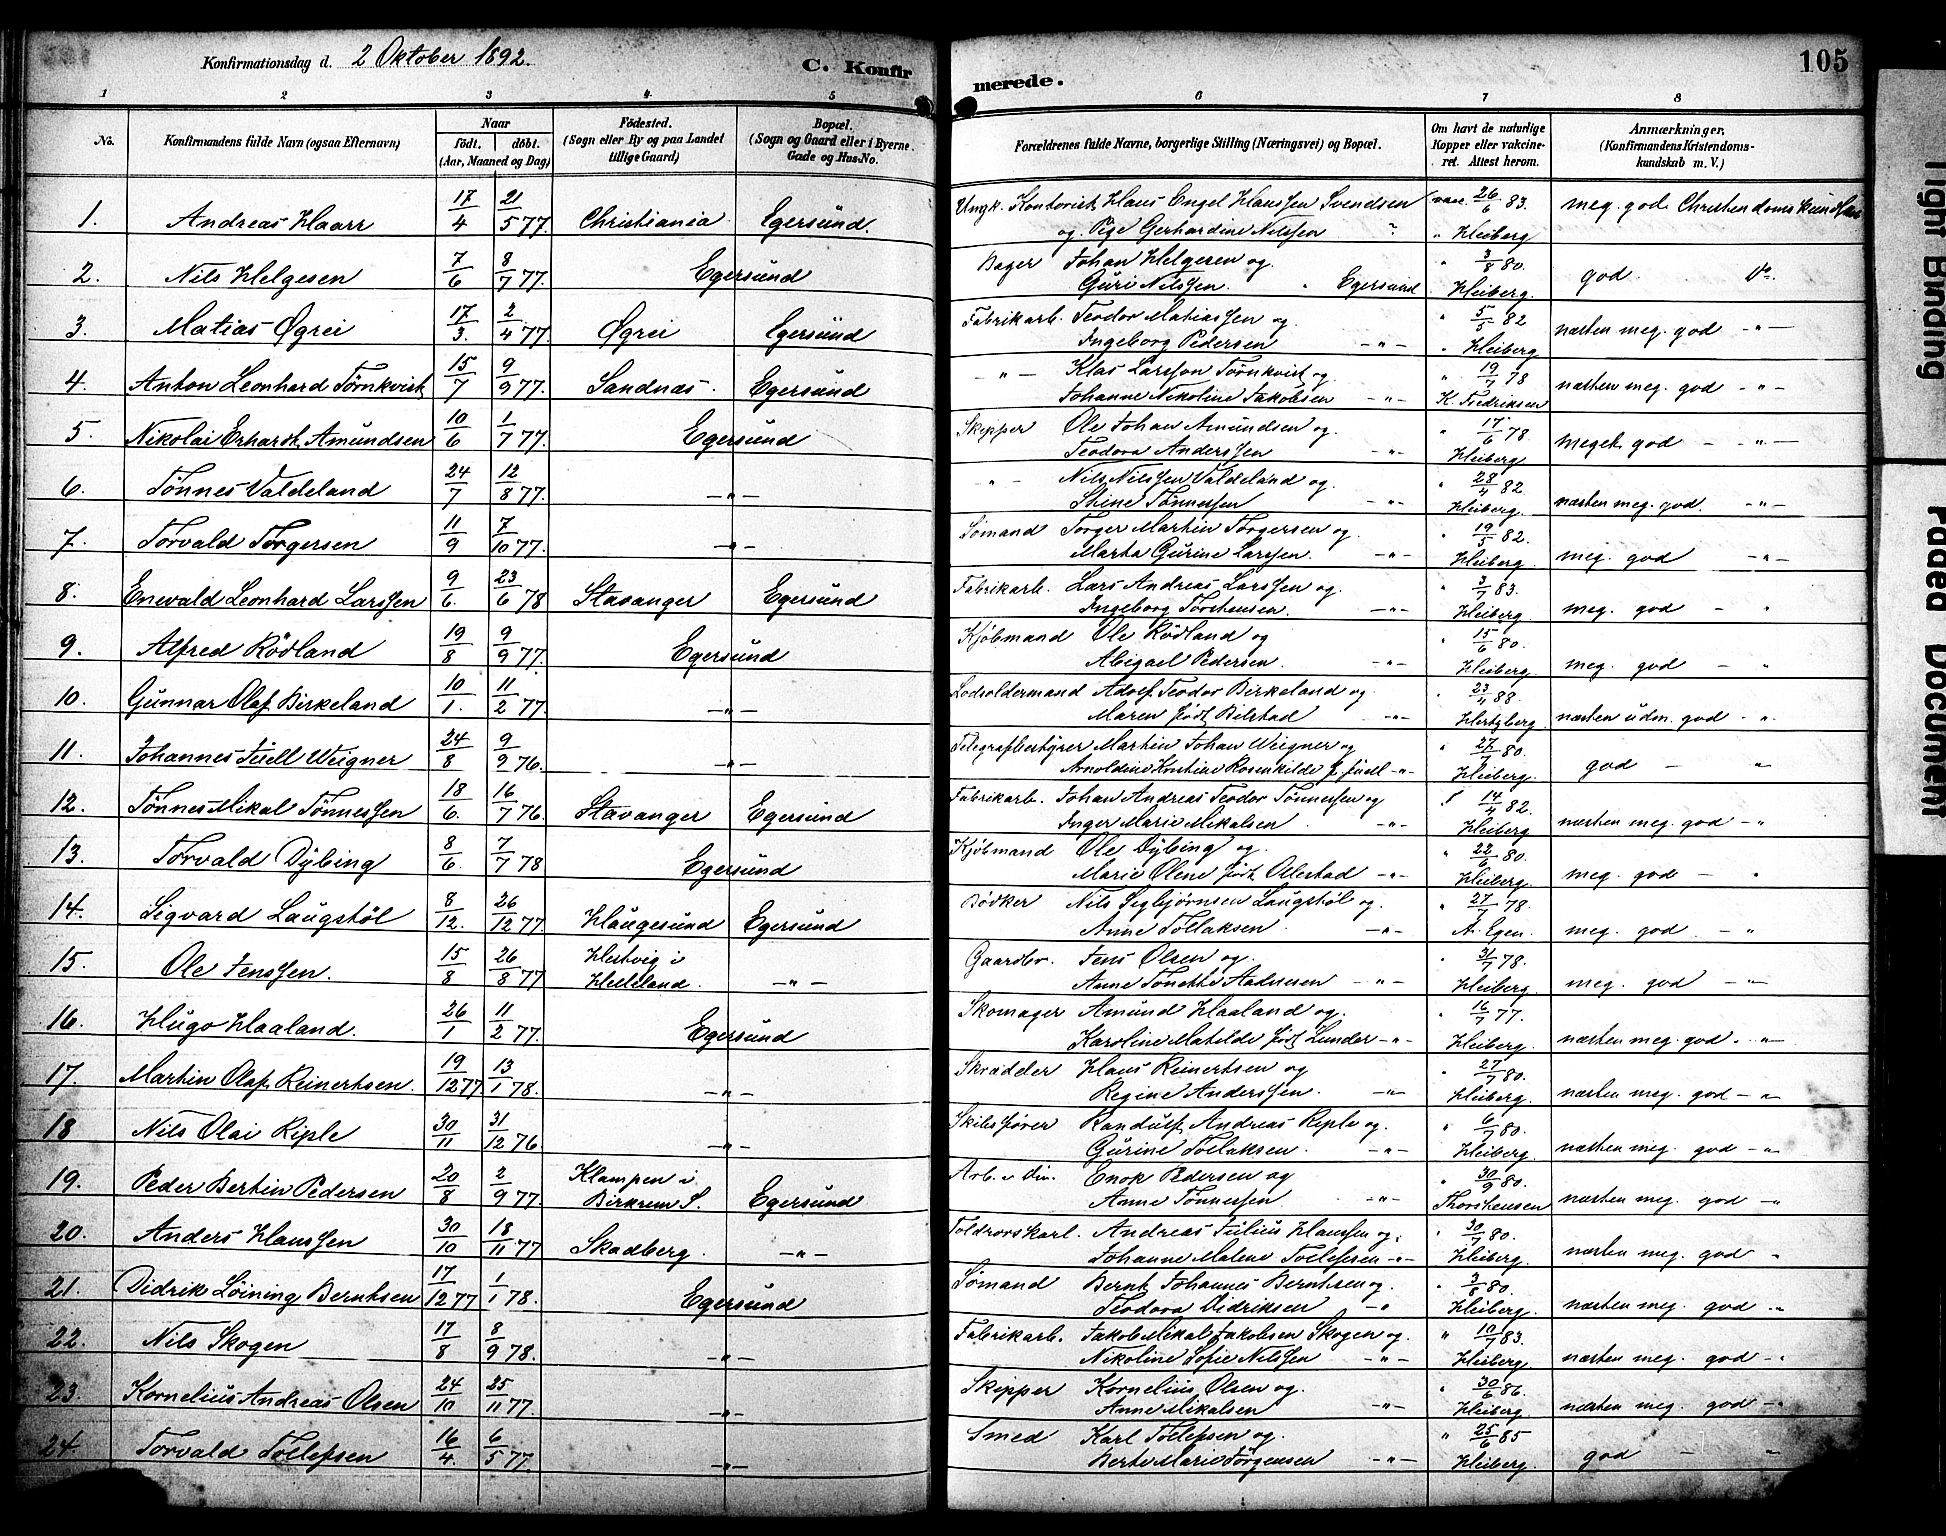 Konfirmationsdag d. 2 Oktober 1892. C. Konfir
merede. 105
1 2 3 4 5 6 7 8
No. Konfirmandens fulde Navn (ogsaa Efternavn) Naar født. døbt. (Aar, Maaned og Dag) Fødested. (Sogn eller By og paa Landet tillige Gaard) Bopæl. (Sogn og Gaard eller i Byerne Gade og Hus-No. Forældrenes fulde Navne, borgerlige Stilling (Næringsvei) og Bopæl. Om havt de naturlige Kopper eller vakcineret. Attest herom. Anmærkninger, (Konfirmandens Kristendomskundskab m. V.)
1. Andreas Haarr 17/4 21/5 77. Christiania Egersund. Ungk. Kontorist Hans Engel Hanssen Svendsen vacc. 26/6 83. meg. god Christendomskundskab
og Pige Gerhardine Nilssen " " Heiberg
2. Nils Helgesen 7/6 8/7 77. Egersund Bager Johan Helgesen og " 3/8 80. god. Do.
Guri Nilssen. " Egersund Heiberg.
3. Matias Øgrei 17/3. 2/4 77. Øgrei Egersund Fabrikarb. Teodor Matiassen og " 5/5 82 næsten meg. god -"-
Ingeborg Pedersen -"- " Heiberg
4. Anton Leonhard Törnkvist 15/7 9/9 77. Sandnæs. Egersund -"- Klas Larsson Törnkvist og " 19/7 78 næsten meg. god -"-
Johanne Nikoline Jakobsen -"- K. Fredriksen
5. Nikolai Erhardt Amundsen 10/6 1/7 77. Egersund Skipper Ole Johan Amundsen og " 17/6 78. meget god -"-
Teodora Anderssen -"- Heiberg
6. Tönnes Valdeland 24/7 12/8 77. -"- -"- Nils Nilssen Valdeland og " 28/4 82. næsten meg. god. -"-
Stine Tönnessen -"- Heiberg.
7. Torvald Torgersen 11/9 7/10 77. -"- Sömand Torger Martin Torgersen og " 19/5 82. meg. god -"-
Marta Gurine Larssen. -"- Heiberg.
8. Enevald Leonhard Larssen 9/6. 23/6 78 Stavanger Egersund Fabrikarb. Lars Andreas Larssen og " 3/7 83. meg. god - "
Ingeborg Torstensen. -"- Heiberg.
9. Alfred Rödland 19/8 9/9 77. Egersund Kjöbmand Ole Rödland og " 15/6 80. meg. god - "
Abigael Pedersen. -"- Heiberg.
10. Gunnar Olaf Birkeland 10/1. 11/2 77. -"- Lodsoldermand Adolf Teodor Birkeland og " 23/4 88. næsten udm. god - "
Maren født Bilstad -"- Hertzberg
11. Johannes Juell Weigner 24/8 9/9 76. -"- Telegrafbestyrer Martin Johan Weigner og " 27/7 80. god - "
Arnoldine Kristine Rosenkilde f. Juell -"- Heiberg.
12. Tönnes Mikal Tönnessen 18/6. 16/7 76. Stavanger Egersund Fabrikarb. Johan Andreas Teodor Tönnessen og " 14/4 82. næsten meg. god - "
Inger Marie Mikalsen -"- Heiberg
13. Torvald Dybing 8/6. 7/7 78 Egersund Kjöbmand Ole Dybing og " 22/6 80. meg. god - "
Marie Olene født Ollestad -"- Heiberg.
14. Sigvard Laugstöl 8/12. 26/12 77. Haugesund Egersund Bödker Nils Segbjørnsen Laugstöl og " 27/7 78. meg. god. - "
Anne Tollaksen -"- A. Egen.
15. Ole Jenssen. 15/8 26/8 77 Hestvig i Helleland. -"- Gaardbr. Jens Olsen og " 31/7 78. meg. god -"-
Anne Tonette Aadnesen -"- Heiberg.
16. Hugo Haaland. 26/1 11/2 77. Egersund Skomager Amund Haaland og " 16/7 77. næsten meg. god. -"-
Karoline Matilde født Lunder -"- Heiberg.
17. Martin Olaf Reinertsen. 19/12 77 13/1 78. -"- Skrædder Hans Reinertsen og " 27/7 80. næsten meg. god - "
Regine Anderssen. -"- Heiberg.
18 Nils Olai Riple 30/11 31/12 76. -"- Skibsfører Randulf Andreas Riple og " 6/7 80. næsten meg. god -"
Gurine Tollaksen. -"- Heiberg.
19. Peder Bertin Pedersen 20/8 2/9 77. Klampen i Birkrem S. Egersund Arb. v Div. Enok Pedersen og " 30/9 80. næsten meg. god -"
Anne Tönnessen -"- Thorstensen
20. Anders Hanssen 30/10 18/11 77 Skadberg. -"- Toldrorskarl. Andreas Julius Hanssen og " 30/7 80. næsten meg. god "
Johanne Malene Tollefsen -"- Heiberg.
21. Didrik Löining Berntsen 17/12 77 1/1 78. Egersund Sömand Bernt Johannes Berntsen og " 3/8 80. næsten meg. god -"
Teodora Didriksen -"- Heiberg.
22. Nils Skogen 17/8 8/9 78. -"- Fabrikarb. Jakob Mikal Jakobsen Skogen og " 10/7 83. næsten meg. god -"
Nikoline Sofie Nilssen -"- Heiberg.
23. Kornelius Andreas Olsen 24/10 25/11 77. -"- Skipper Kornelius Olsen og " 30/6 86. næsten meg. god -"
Anne Mikalsen -"- Heiberg.
24. Torvald Tollefsen 16/4. 6/5 77. -"- Smed Karl Tollefsen og " 25/6 85 god - "
Berte Marie Törgensen -"- Heiberg.
Tight Binding
Faded Document